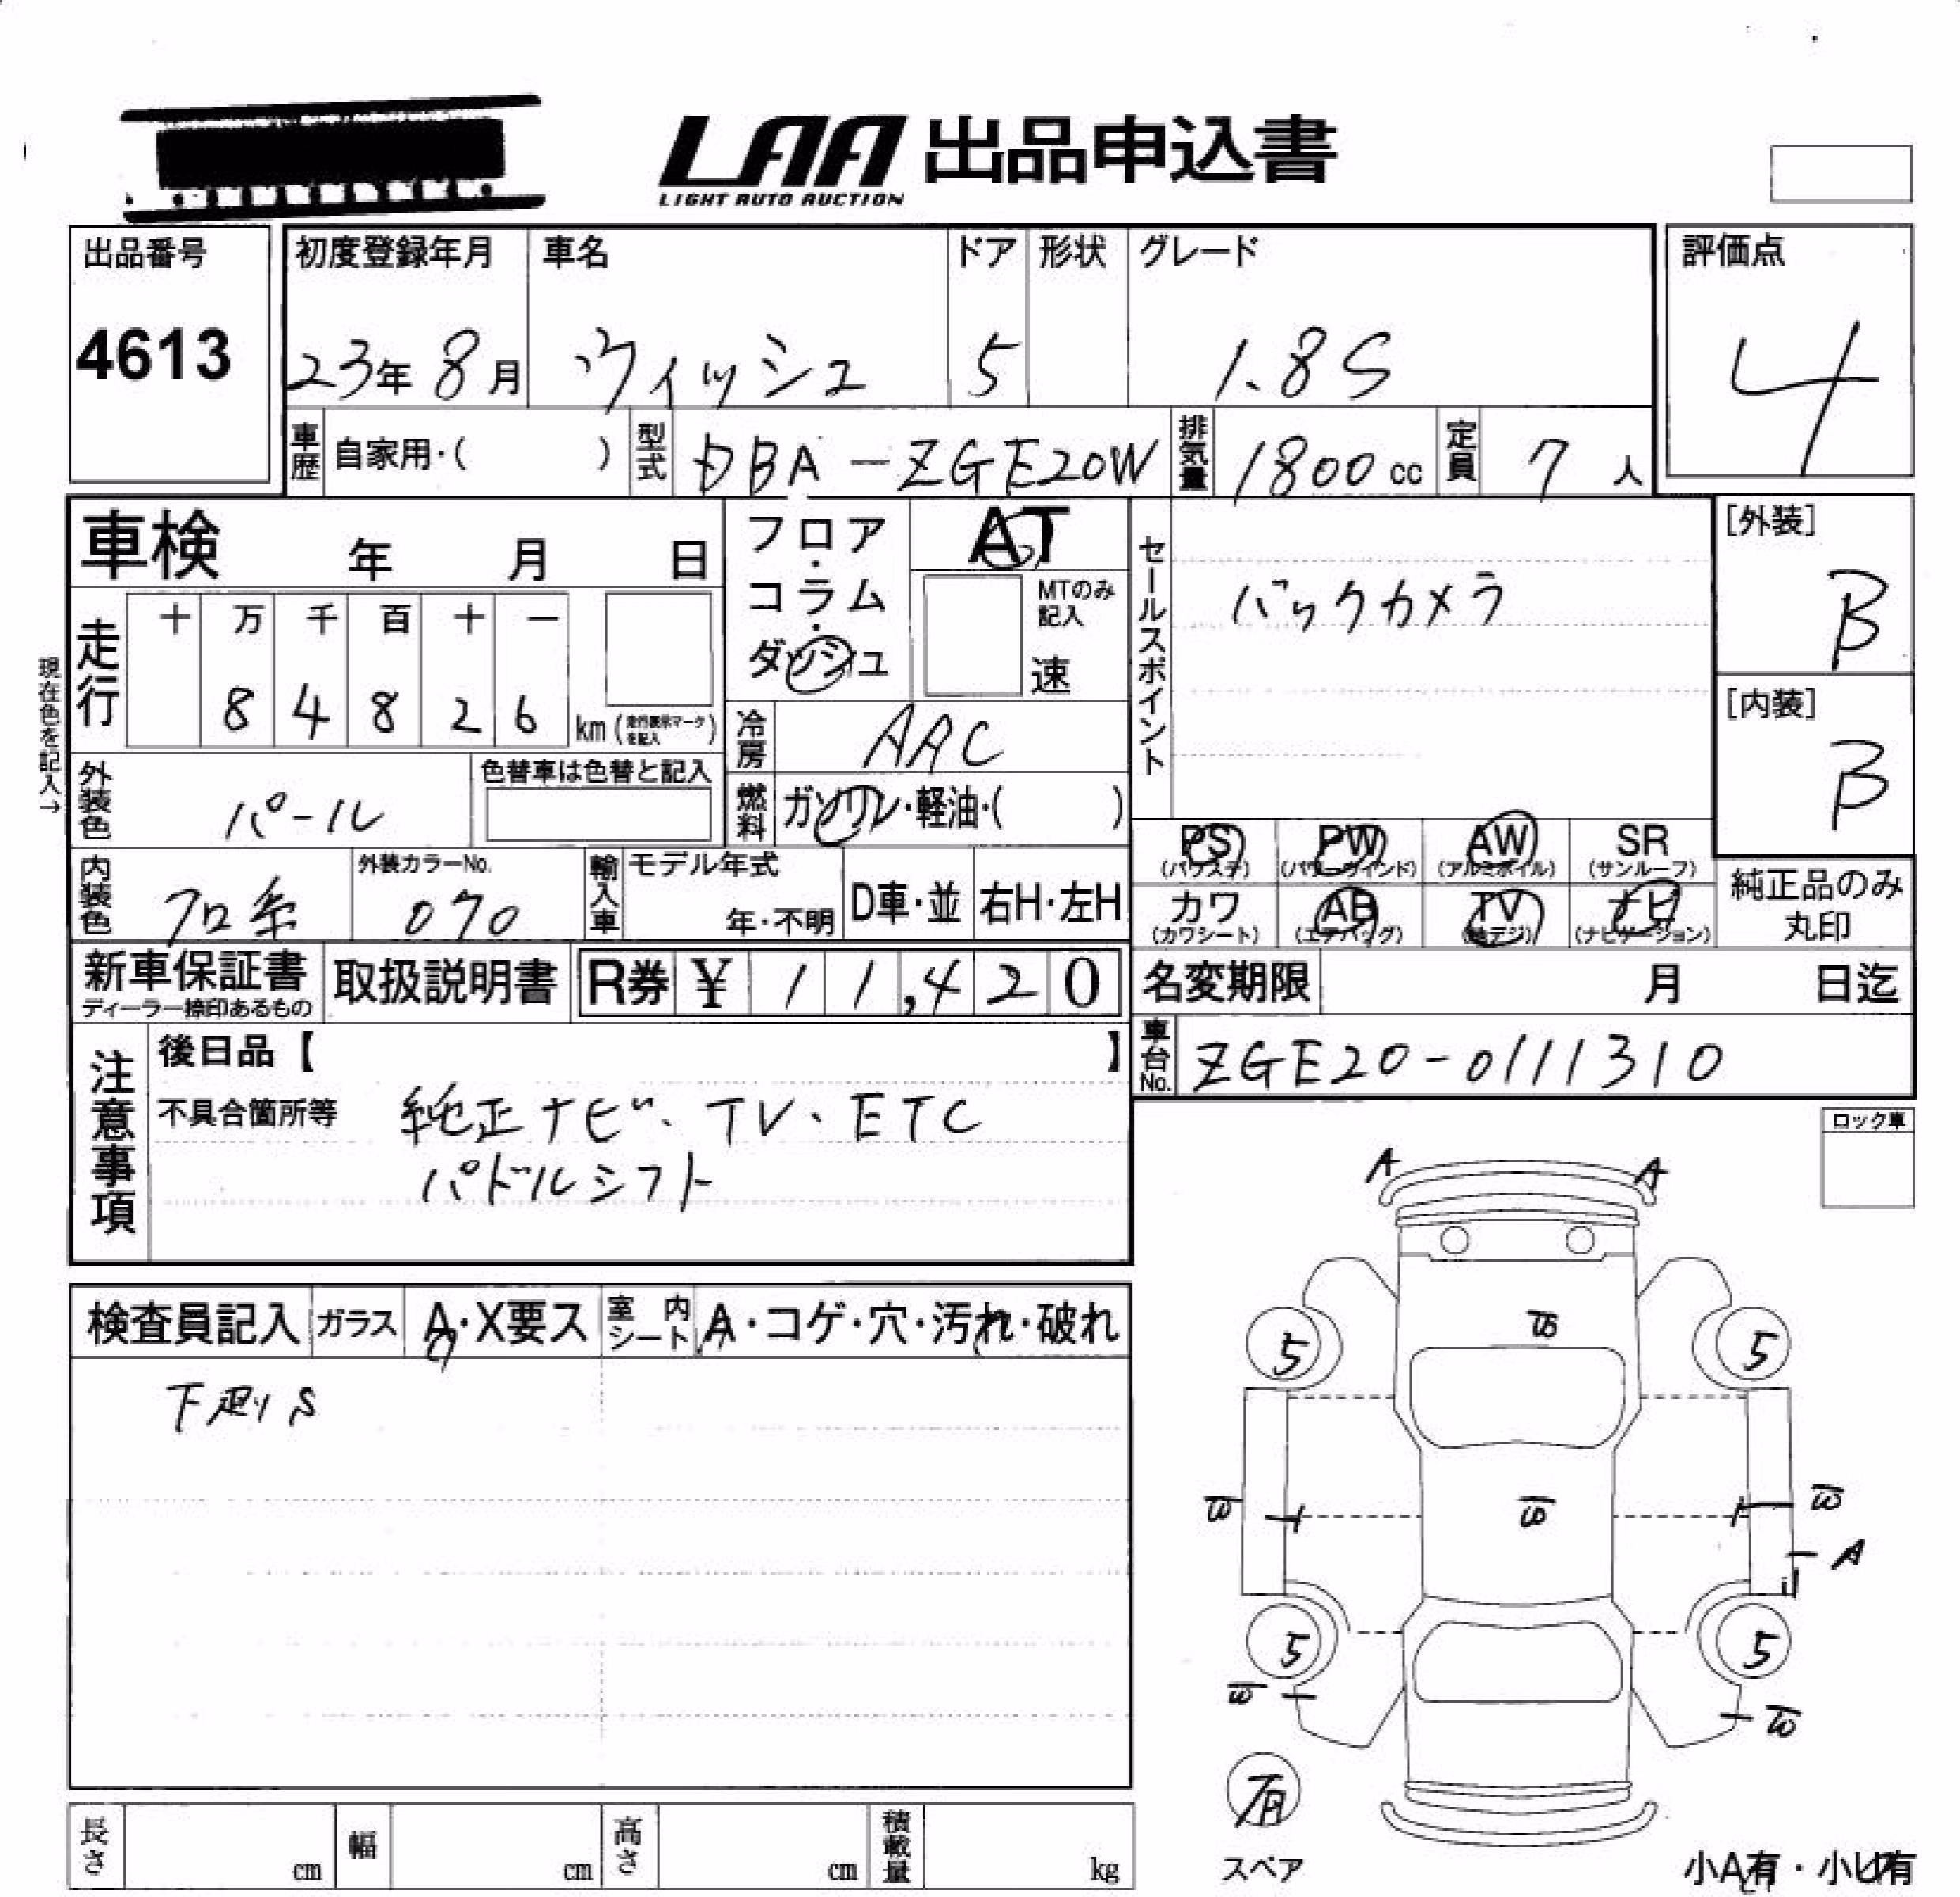 LAA 出品申込書
LIGHT AUTO AUCTION
出品番号
4613
初度登録年月
23年 8月
車名
ウィッシュ
ドア
5
形状
グレード
1.8S
評価点
4
車歴 自家用・( )
型式 DBA-ZGE20W
排気量 1800cc
定員 7人
車検 年 月 日
フロア・コラム・ダッシュ
AT
MTのみ記入
速
セールスポイント
バックカメラ
[外装]
B
[内装]
B
現在色を記入→
走行
十 万 千 百 十 一
8 4 8 2 6 km (走行表示マークを記入)
冷房 AAC
外装色 パール
色替車は色替と記入
燃料 ガソリン・軽油・( )
PS (パワステ)
PW (パワーウィンド)
AW (アルミホイル)
SR (サンルーフ)
カワ (カワシート)
AB (エアバッグ)
TV (地デジ)
ナビ (ナビゲーション)
純正品のみ丸印
内装色 クロ系
外装カラーNo.
070
輸入車
モデル年式
年・不明
D車・並
右H・左H
新車保証書
ディーラー捺印あるもの
取扱説明書
R券 ¥ 11,420
名変期限 月 日迄
車台No. ZGE20-0111310
注意事項
後日品【 】
不具合箇所等 純正ナビ、TV、ETC
パドルシフト
ロック車
検査員記入
ガラス A・X要ス
室内シート A・コゲ・穴・汚れ・破れ
下廻りS
A A
S
5 5
W S W
A
5 5
W W
有
スペア
小A有・小U有
長さ cm
幅 cm
高さ cm
積載量 kg